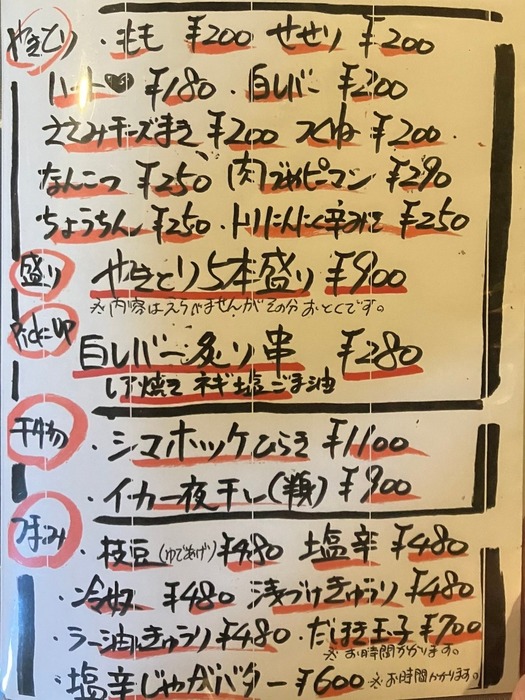 やきとり ・もも ¥200 せせり ¥200
ハート♥ ¥180 ・白レバー ¥200
ささみチーズまき ¥200 つくね ¥200
なんこつ ¥250 肉づめピーマン ¥290
ちょうちん ¥250 ・トリにんにく辛みそ ¥250
盛り やきとり5本盛り ¥900
※内容はえらべませんがその分おとくです。
Pick-UP
白レバー炙り串 ¥280
レア焼き ネギ塩ごま油
干物 ・シマホッケひらき ¥1100
・イカ一夜干し ¥900
つまみ ・枝豆(ゆであげ) ¥480 塩辛 ¥480
・冷奴 ¥480 浅づけきゅうり ¥480
・ラー油きゅうり ¥480 ・だしまき玉子 ¥700
※お時間かかります。
・塩辛じゃがバター ¥600 ※お時間かかります。